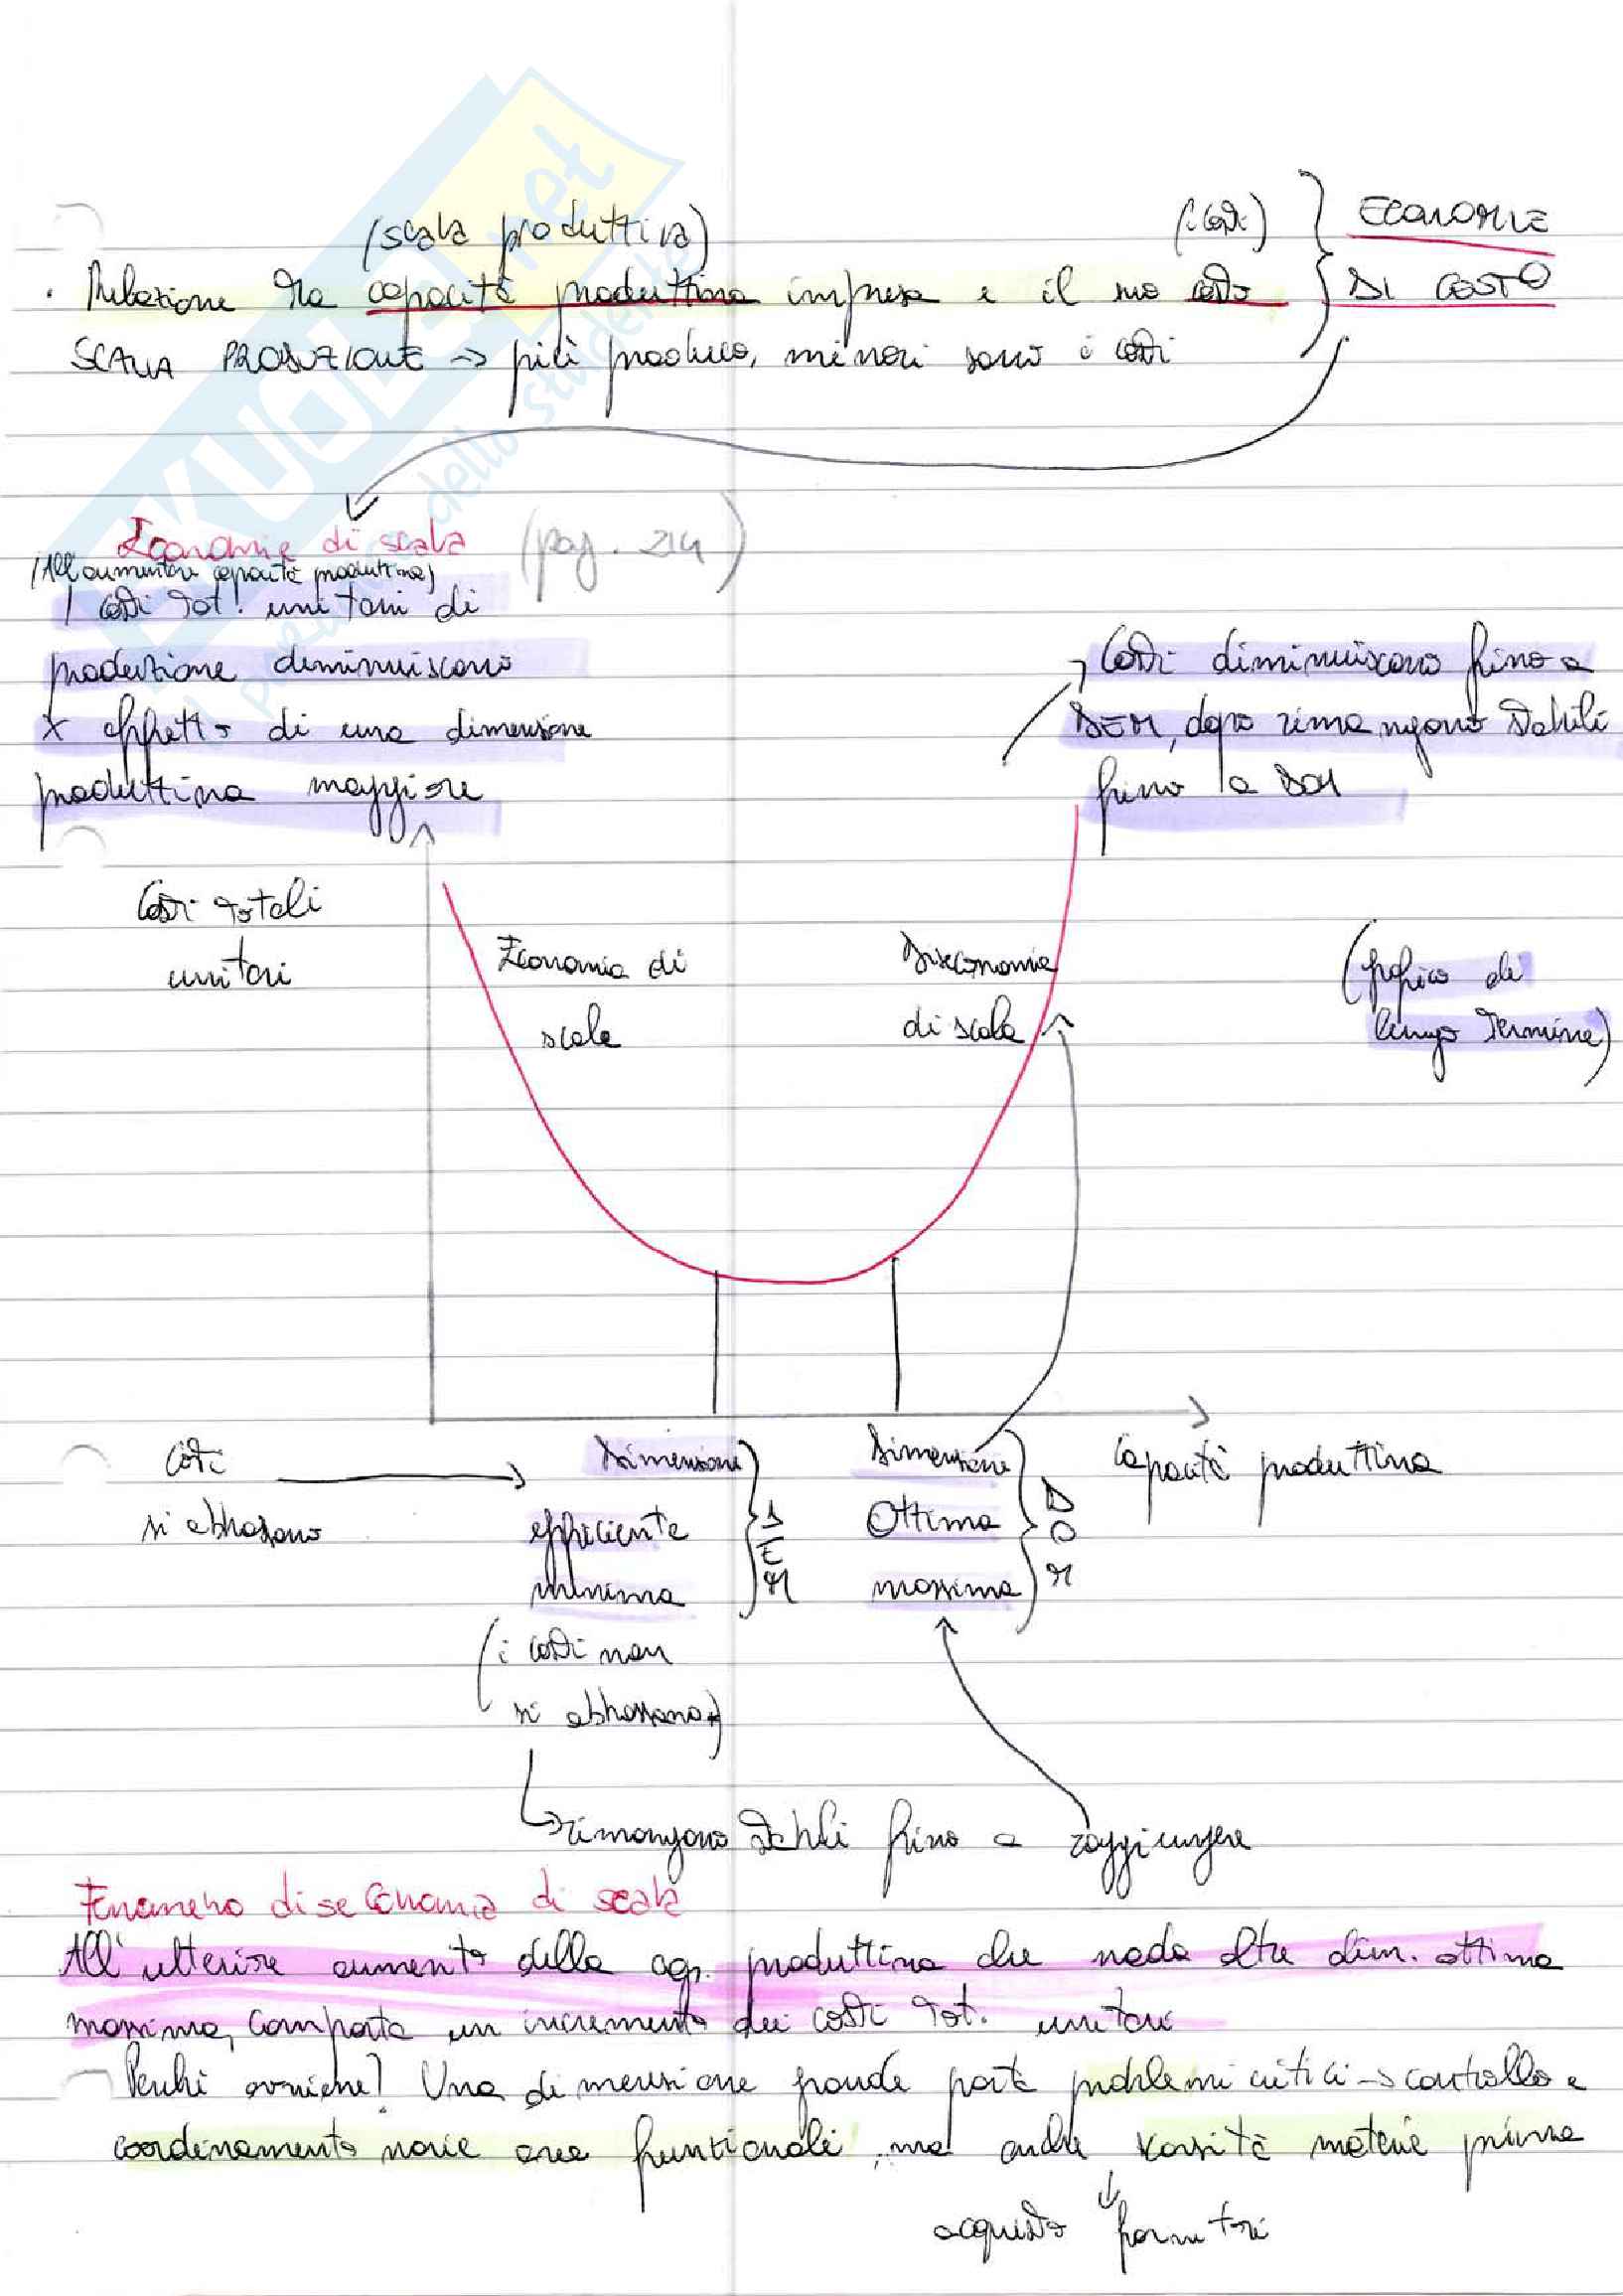 (scala produttiva) (i costi)
• Relazione tra capacità produttiva impresa e il suo costo } ECONOMIE
DI COSTO
SCALA PRODUZIONE → più produco, minori sono i costi
Economie di scala (pag. 214)
(All'aumentare capacità produttiva)
I costi tot. unitari di
produzione diminuiscono
x effetto di una dimensione
produttiva maggiore
Costi diminuiscono fino a
DEM, dopo rimangono stabili
fino a DOM
Costi totali
unitari
Economia di
scala
Diseconomia
di scala
(grafico di
lungo termine)
Costi
si abbassano
Dimensione
efficiente
minima
DEM
Dimensione
Ottima
massima
DOM
Capacità produttiva
(i costi non
si abbassano)
rimangono stabili fino a raggiungere
Fenomeno diseconomia di scala
All'ulteriore aumento della cap. produttiva che vada oltre dim. ottima
massima, comporta un incremento dei costi tot. unitari
Perché avviene? Una dimensione grande porta problemi critici → controllo e
coordinamento varie aree funzionali, ma anche scarsità materie prime
acquisto fornitori
SKUOLA.net
Il paradiso dello studente